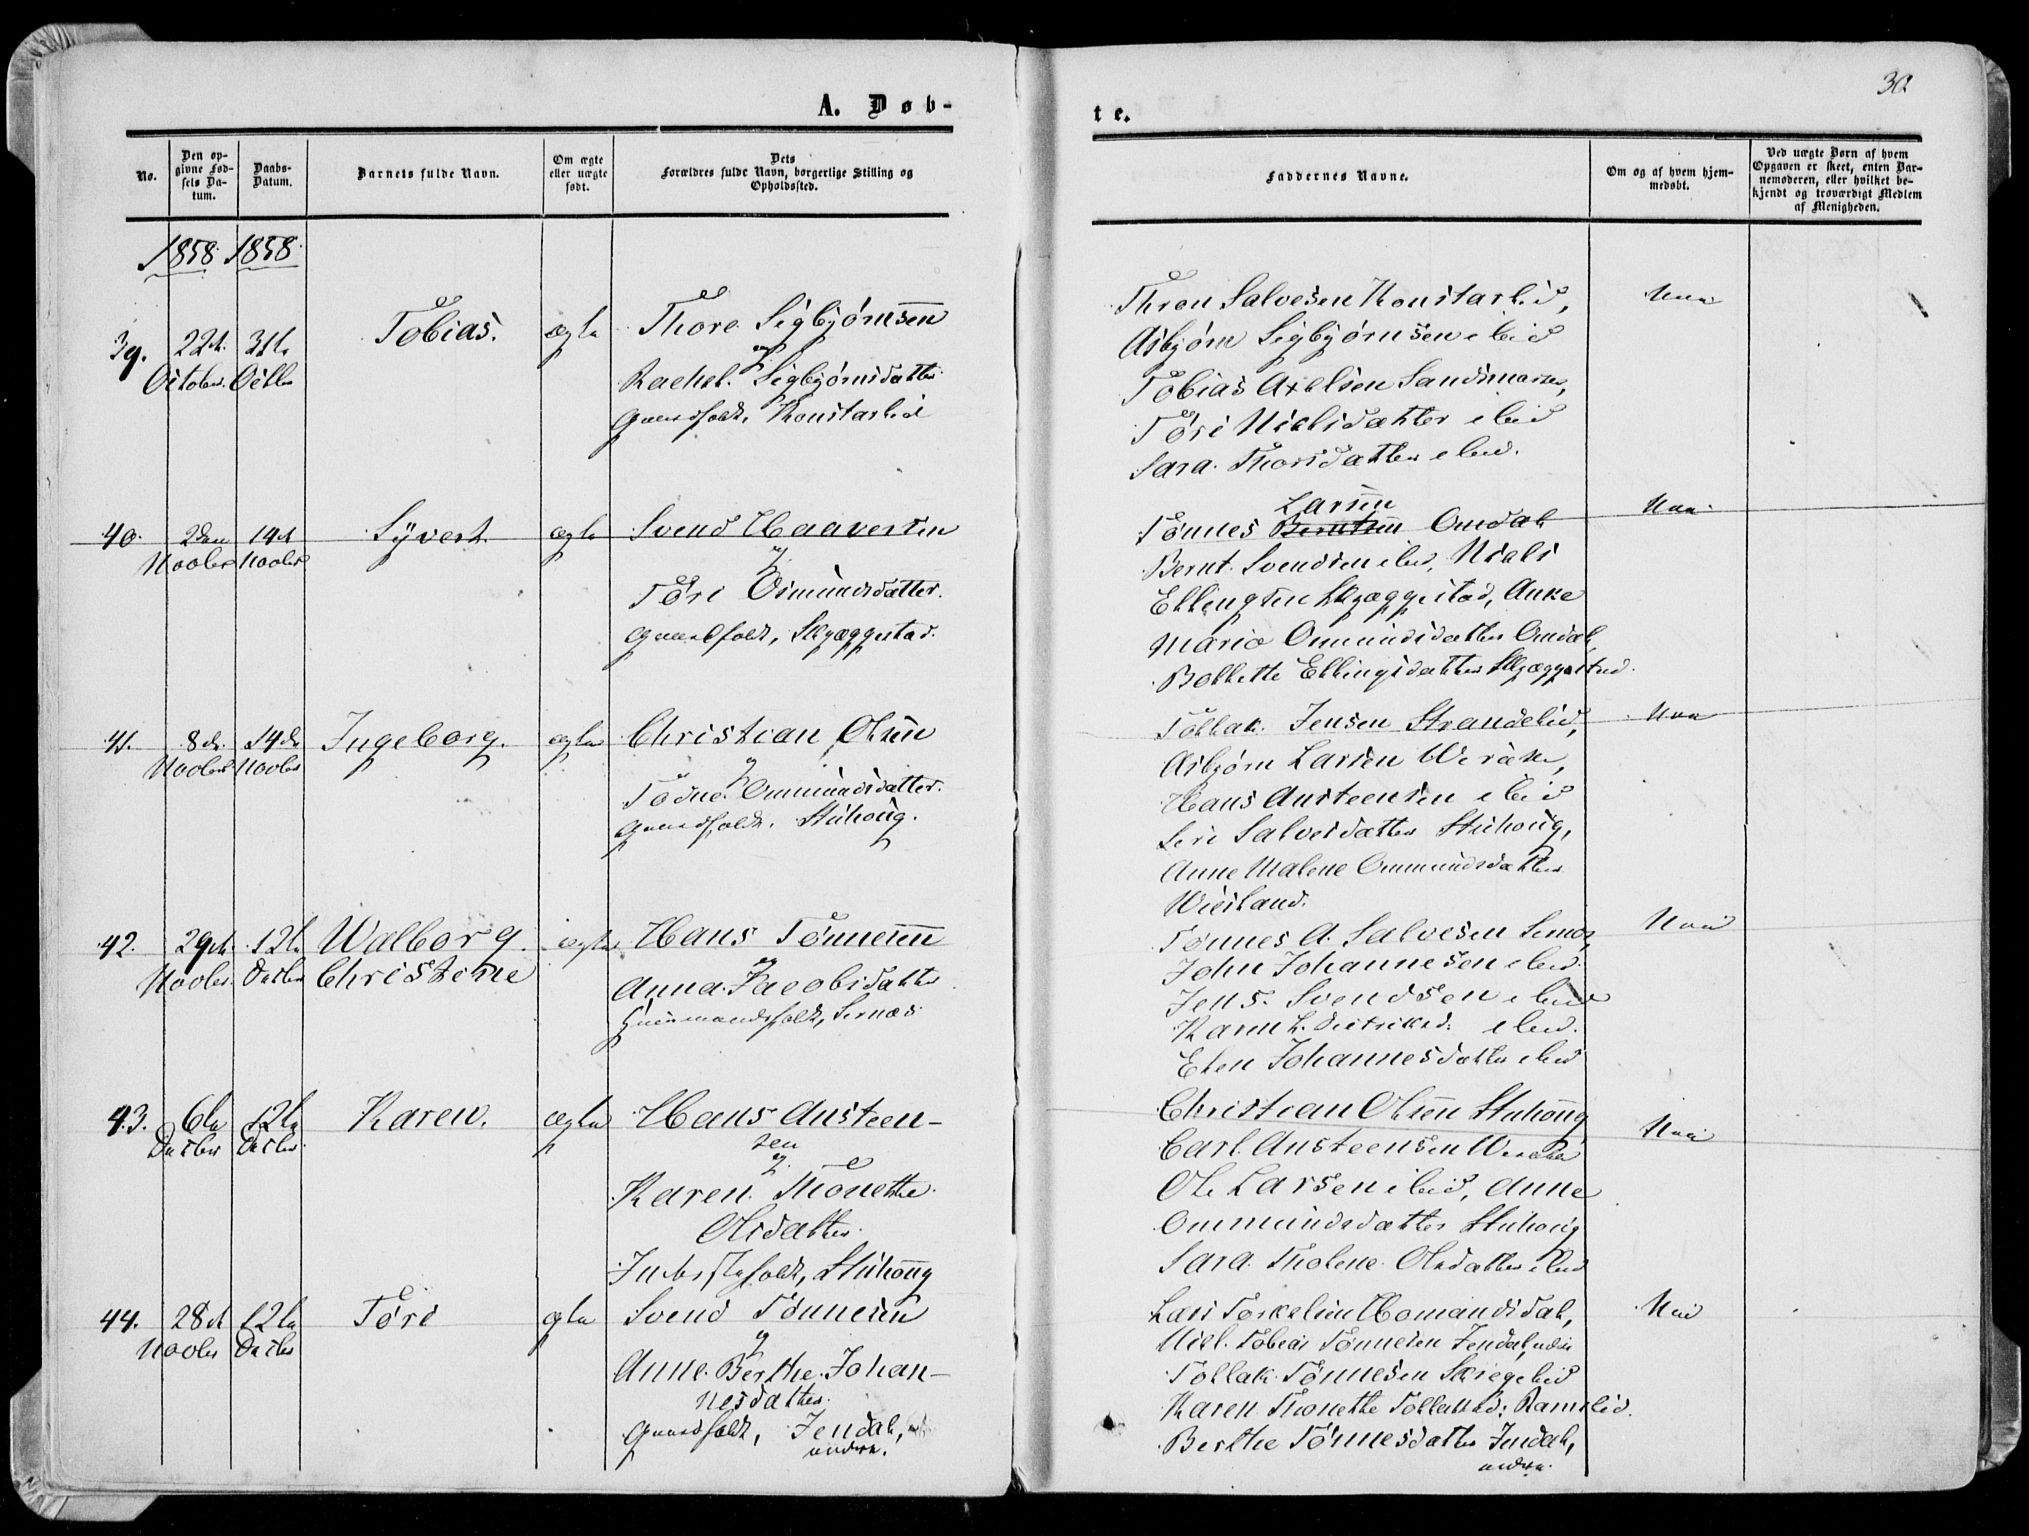 30
A. Døb-
te.
No.
Den op-
givne Fød-
sels Da-
tum.
Daabs-
Datum.
Barnets fulde Navn.
Om ægte
eller uægte
født.
Dets
Forældres fulde Navn, borgerlige Stilling og
Opholdssted.
Faddernes Navne.
Om og af hvem hjem-
medøbt.
Ved uægte Børn af hvem
Opgaven er skeet, enten Bar-
nemoderen, eller hvilket be-
kjendt og troværdigt Medlem
af Menigheden.
1858. 1858.
39.
22de 31te
October. Octbr
Tobias.
ægte
Thore Sigbjørnsen
og
Rachel Sigbjørnsdatter
Gaardfolk, Konstaclid
Thron Salvesen Konstaclid,
Asbjørn Sigbjørnsen ibid
Tobias Axelsen
Töri Nielsdatter ibid
Sara Thorsdatter ibid.
40.
2den 14de
Novbr Novbr
Syvert
ægte
Svend Haaversen
og
Töri Osmundsdatter.
Gaardfolk, Skjæggestad.
Larsen
Tønnes Berntsen Omdal
Bernt Svendsen ibid, Niels
Ellingsen Skjæggestad, Anne
Maria Ommundsdatter Omdal,
Bollette Ellingsdatter Skjæggestad.
41.
8de 14de
Novbr Novbr
Ingeborg.
ægte
Christian Olsen
og
Ommundsdatter.
Gaardfolk. Stuhoug.
Tollak Jensen Strandelid,
Asbjørn Larsen
Hans Austeensen ibid
Siri Salvesdatter Stuhoug,
Anne Malene Ommundsdatter
42.
29de 12te
Novbr. Decbr
Walborg
Christine
ægte
Hans Tønnesen
og
Anna Jacobsdatter
Tønnes A. Salvesen
John Johannesen ibid.
Jens Svendsen ibid
Elen Johannesdatter ibid
43.
6te 12te
Decbr Decbr.
Karen.
ægte
Hans Austeen-
sen
og
Karen Thonette
Olsdatter.
Inderstefolk, Stuhoug
Christian Olsen Stuhoug
Carl Austeensen
Ole Larsen ibid, Anne
Ommundsdatter Stuhoug
Sara Tholene Olsdatter ibid
44.
28de 12te
Novbr Decbr
Töri
ægte
Svend Tønnesen
og
Anne Berthe Johan-
nesdatter.
Gaardfolk, Jendal,
undre.
Lars Torkelsen Homandsdal,
Niel. Tobias Tønnesen Jendal, undre
Tollak Tønnesen Skregelid
Karen Thonette Ramslid.
Berthe Tønnesdatter Jendal,
undre.